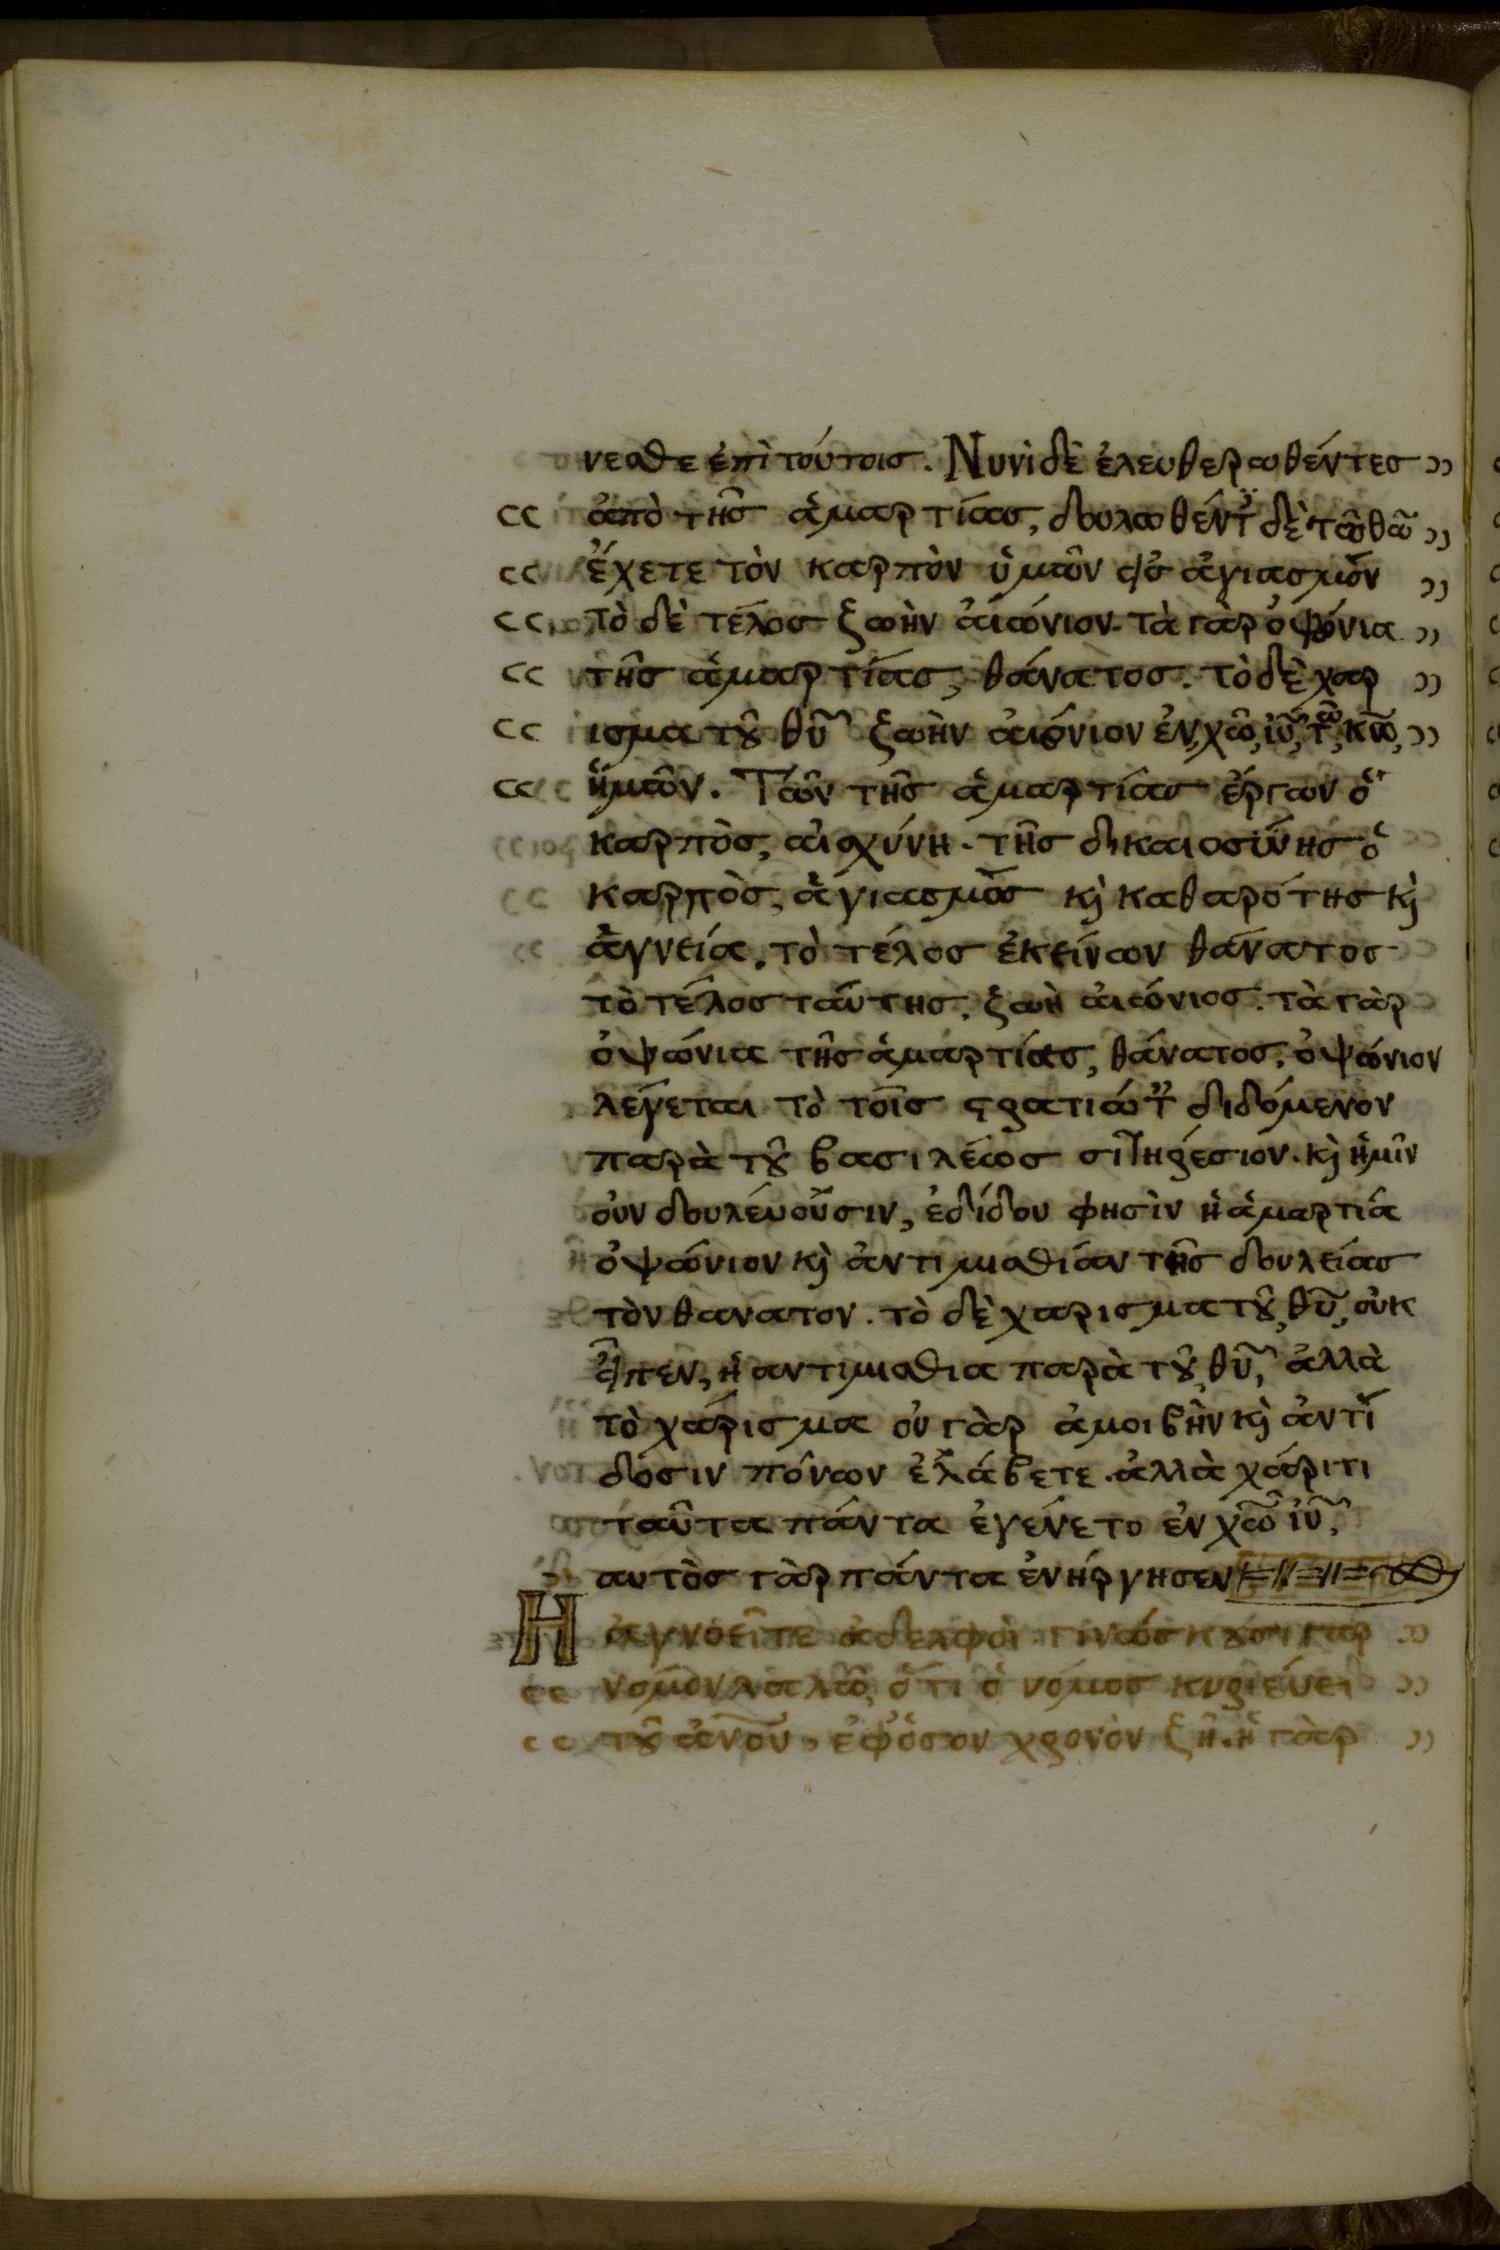 νεσθε ἐπὶ τούτοις. Νυνὶ δὲ ἐλευθερωθέντες
ἀπὸ τῆς ἁμαρτίας, δουλωθέντ δὲ τῶ θῶ
ἔχετε τὸν καρπὸν ὑμῶν εἰσ ἁγιασμὸν
τὸ δὲ τέλος ζωὴν αἰώνιον. τὰ γὰρ ὀψώνια
τῆς ἁμαρτίας, θάνατος. τὸ δὲ χαρ
ισμα τοῦ θῦ ζωὴν αἰώνιον ἐν χῶ ἰῦ τῶ κῶ
ἡμῶν. Τῶν τῆς ἁμαρτίας ἔργων ὁ
καρπὸς, αἰσχύνη. τῆς δικαιοσύνης ὁ
καρπὸς, ἁγιασμὸς κὶ καθαρότης κὶ
ἁγνεία. τὸ τέλος ἐκείνων θάνατος
τὸ τέλος ταύτης, ζωὴ αἰώνιος. τὰ γὰρ
ὀψώνια τῆς ἁμαρτίας, θάνατος, ὀψώνιον
λέγεται τὸ τοῖς στρατιώτ διδόμενον
παρὰ τοῦ βασιλέως σιτηρέσιον. κὶ ἡμῖν
οὐν δουλεύουσιν, ἐδίδου φησὶν ἡ ἁμαρτία
ὀψώνιον κὶ ἀντιμισθίαν τῆς δουλείας
τὸν θανατον. τὸ δὲ χαρισμα τοῦ θῦ, οὐκ
εἶπεν, ἡ αντιμισθια παρὰ τοῦ θῦ, ἀλλὰ
τὸ χάρισμα οὐ γὰρ ἀμοιβὴν κὶ ἀντί
δοσιν πόνων ἐλάβετε. ἀλλὰ χάριτι
ταῦτα πάντα ἐγένετο ἐν χῶ ἰῦ,
αυτὸς γὰρ πάντα ἐνήργησεν
Η ἀγνοεῖτε ἀδελφοὶ γινώσκουσι γαρ
νόμον λαλῶ, ὅτι ὁ νόμος κυριεύει
τοῦ ἀνου, ἐφ ὅσον χρονὸν ζῆ. ἡ γὰρ